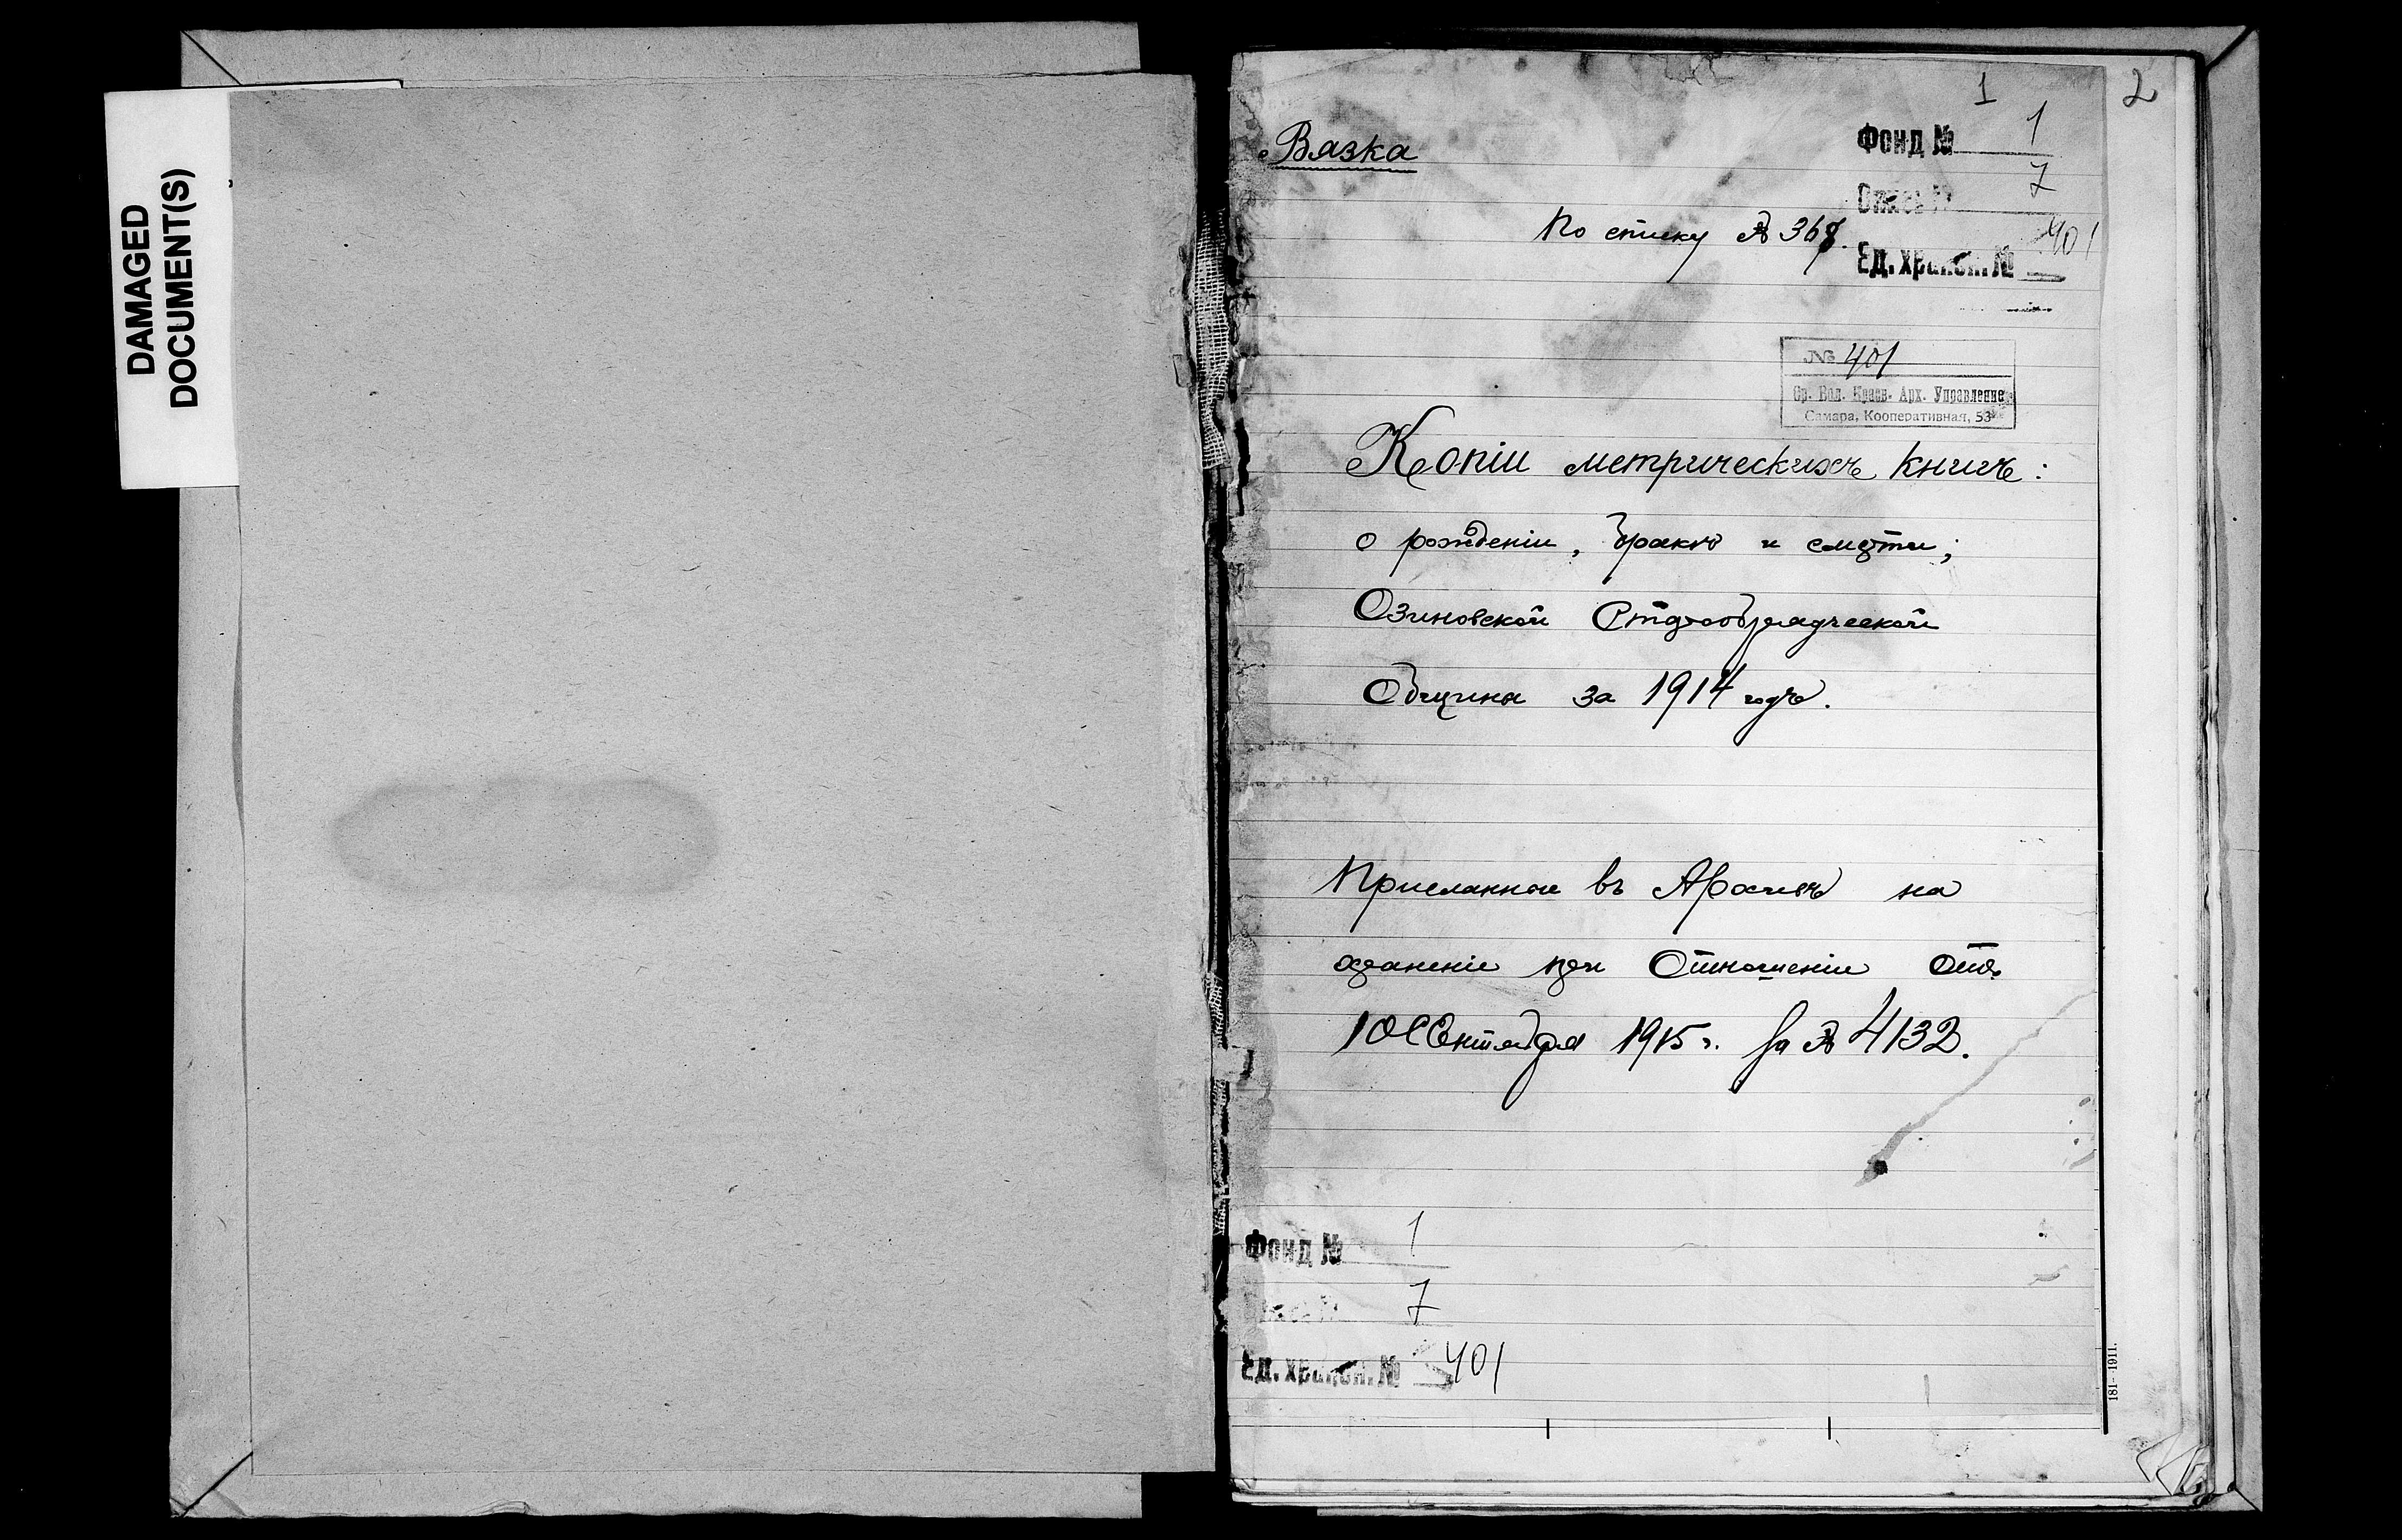 DAMAGED
DOCUMENT(S)
1
2
Вязка
Фонд № 1
Опись № 7
По списку № 368.
Ед. хранен. № 401
№ 401
Ср. Вол. Краев. Арх. Управление
Самара, Кооперативная, 53
Копіи метрическихъ книгъ:
о рожденіи, бракѣ и смерти;
Озиновской Старообрядческой
Общины за 1914 годъ.
Присланные въ Архивъ на
храненіе при Отношеніи отъ
10 Сентября 1915 г. за № 4132.
Фонд № 1
Опись № 7
Ед. хранен. № 401
181-1911.